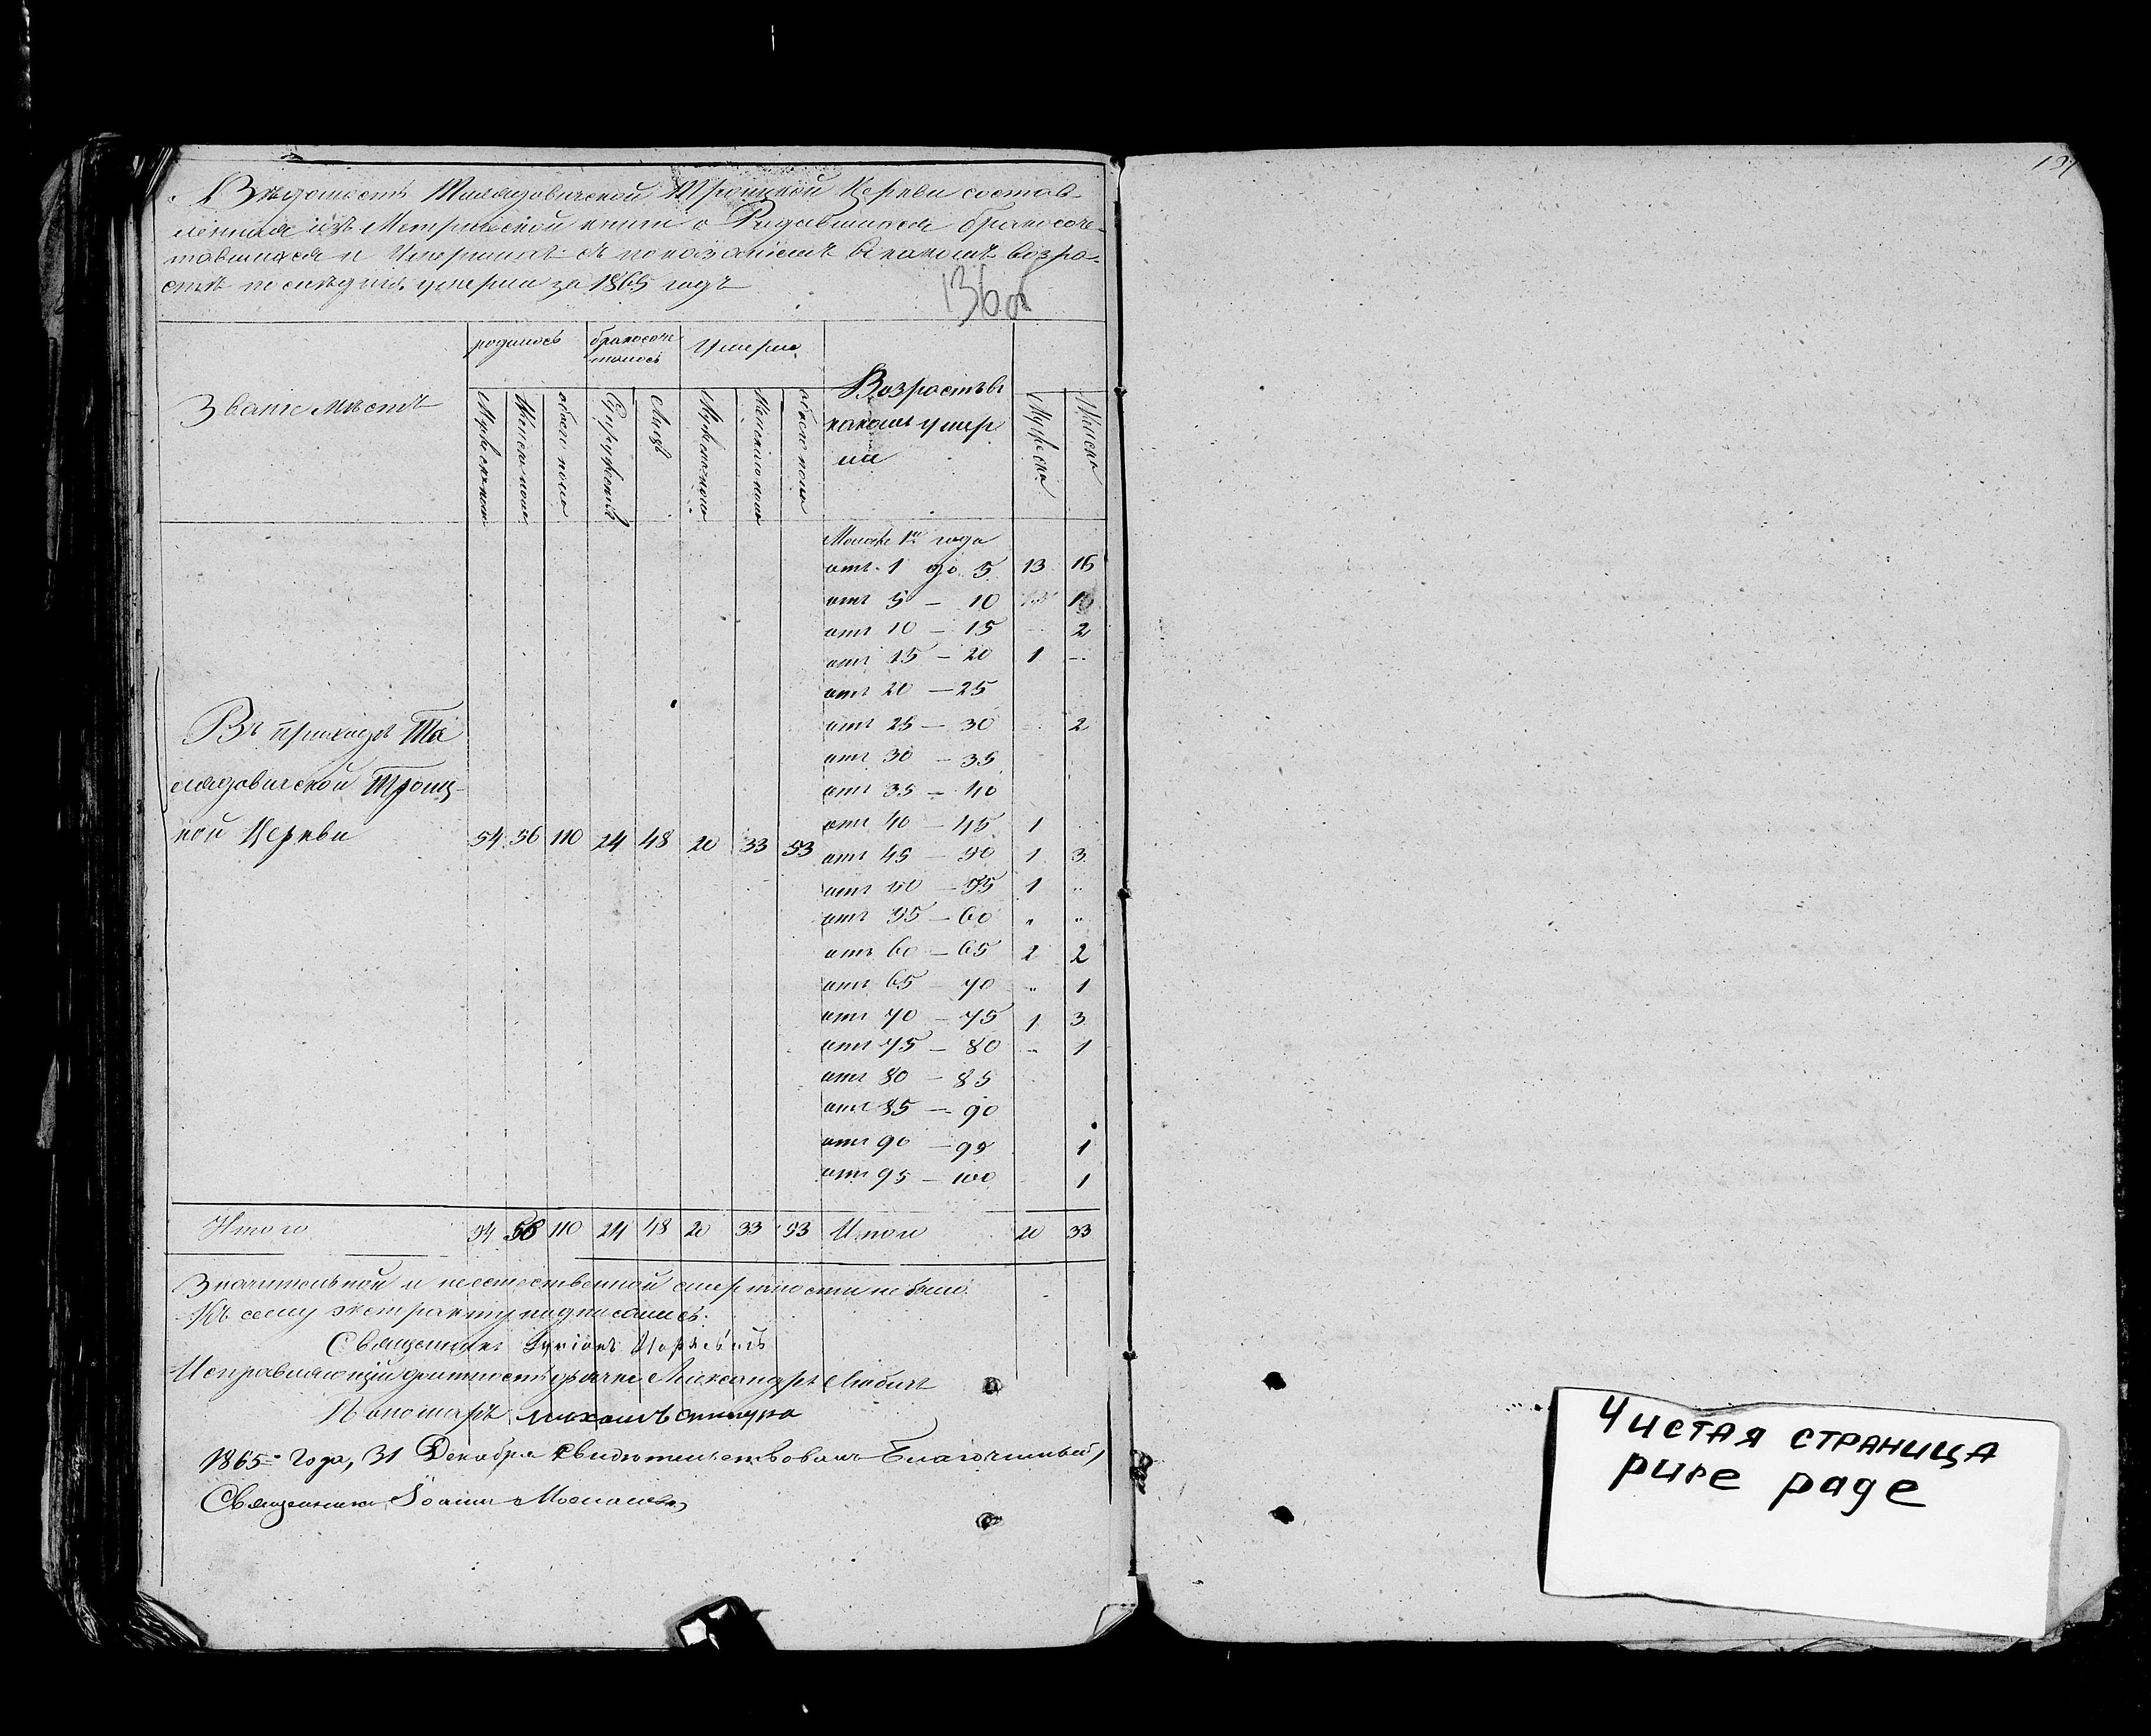 Вѣдомость Телядовичской Троицкой Церкви состав-
ленная изъ Метрической книги о Родившихся бракосоче-
тавшихся и Умершихъ съ показаніемъ въ какомъ возра-
стѣ послѣдніе умерли за 1865 годъ
136об
Званіе мѣстъ
родилось
бракосоче
талось
Умерло
Возрастъ въ
какомъ умер
ли
Мужеска
Женска
Мужеска пола
Женска пола
обоего пола
Супружествъ
Лицъ
Мужеска пола
Женскаго пола
обоего пола
Менѣе 1го года
отъ 1 до 5 13 16
отъ 5 — 10
отъ 10 — 15 2
отъ 15 — 20 1 —
отъ 20 — 25
отъ 25 — 30 2
отъ 30 — 35
отъ 35 — 40
отъ 40 — 45 1
отъ 45 — 50 1 3
отъ 50 — 55 1 „
отъ 55 — 60 „ „
отъ 60 — 65 2 2
отъ 65 — 70 „ 1
отъ 70 — 75 1 3
отъ 75 — 80 „ 1
отъ 80 — 85
отъ 85 — 90
отъ 90 — 95 1
отъ 95 — 100 1
Въ приходѣ Те
лядовичской Троиц-
кой Церкви 54 56 110 24 48 20 33 53
Итого 54 56 110 24 48 20 33 53 Итого 20 33
Значительной и неестественной смертности не было.
Къ сему экстракту подписались:
Священникъ
Исправляющій должность дьячка Александръ
Пономарь Михаилъ
1865го Года, 31 Декабря свидѣтельствовалъ Благочинный,
Священникъ Іоаннъ
137
Чистая страница
pure page